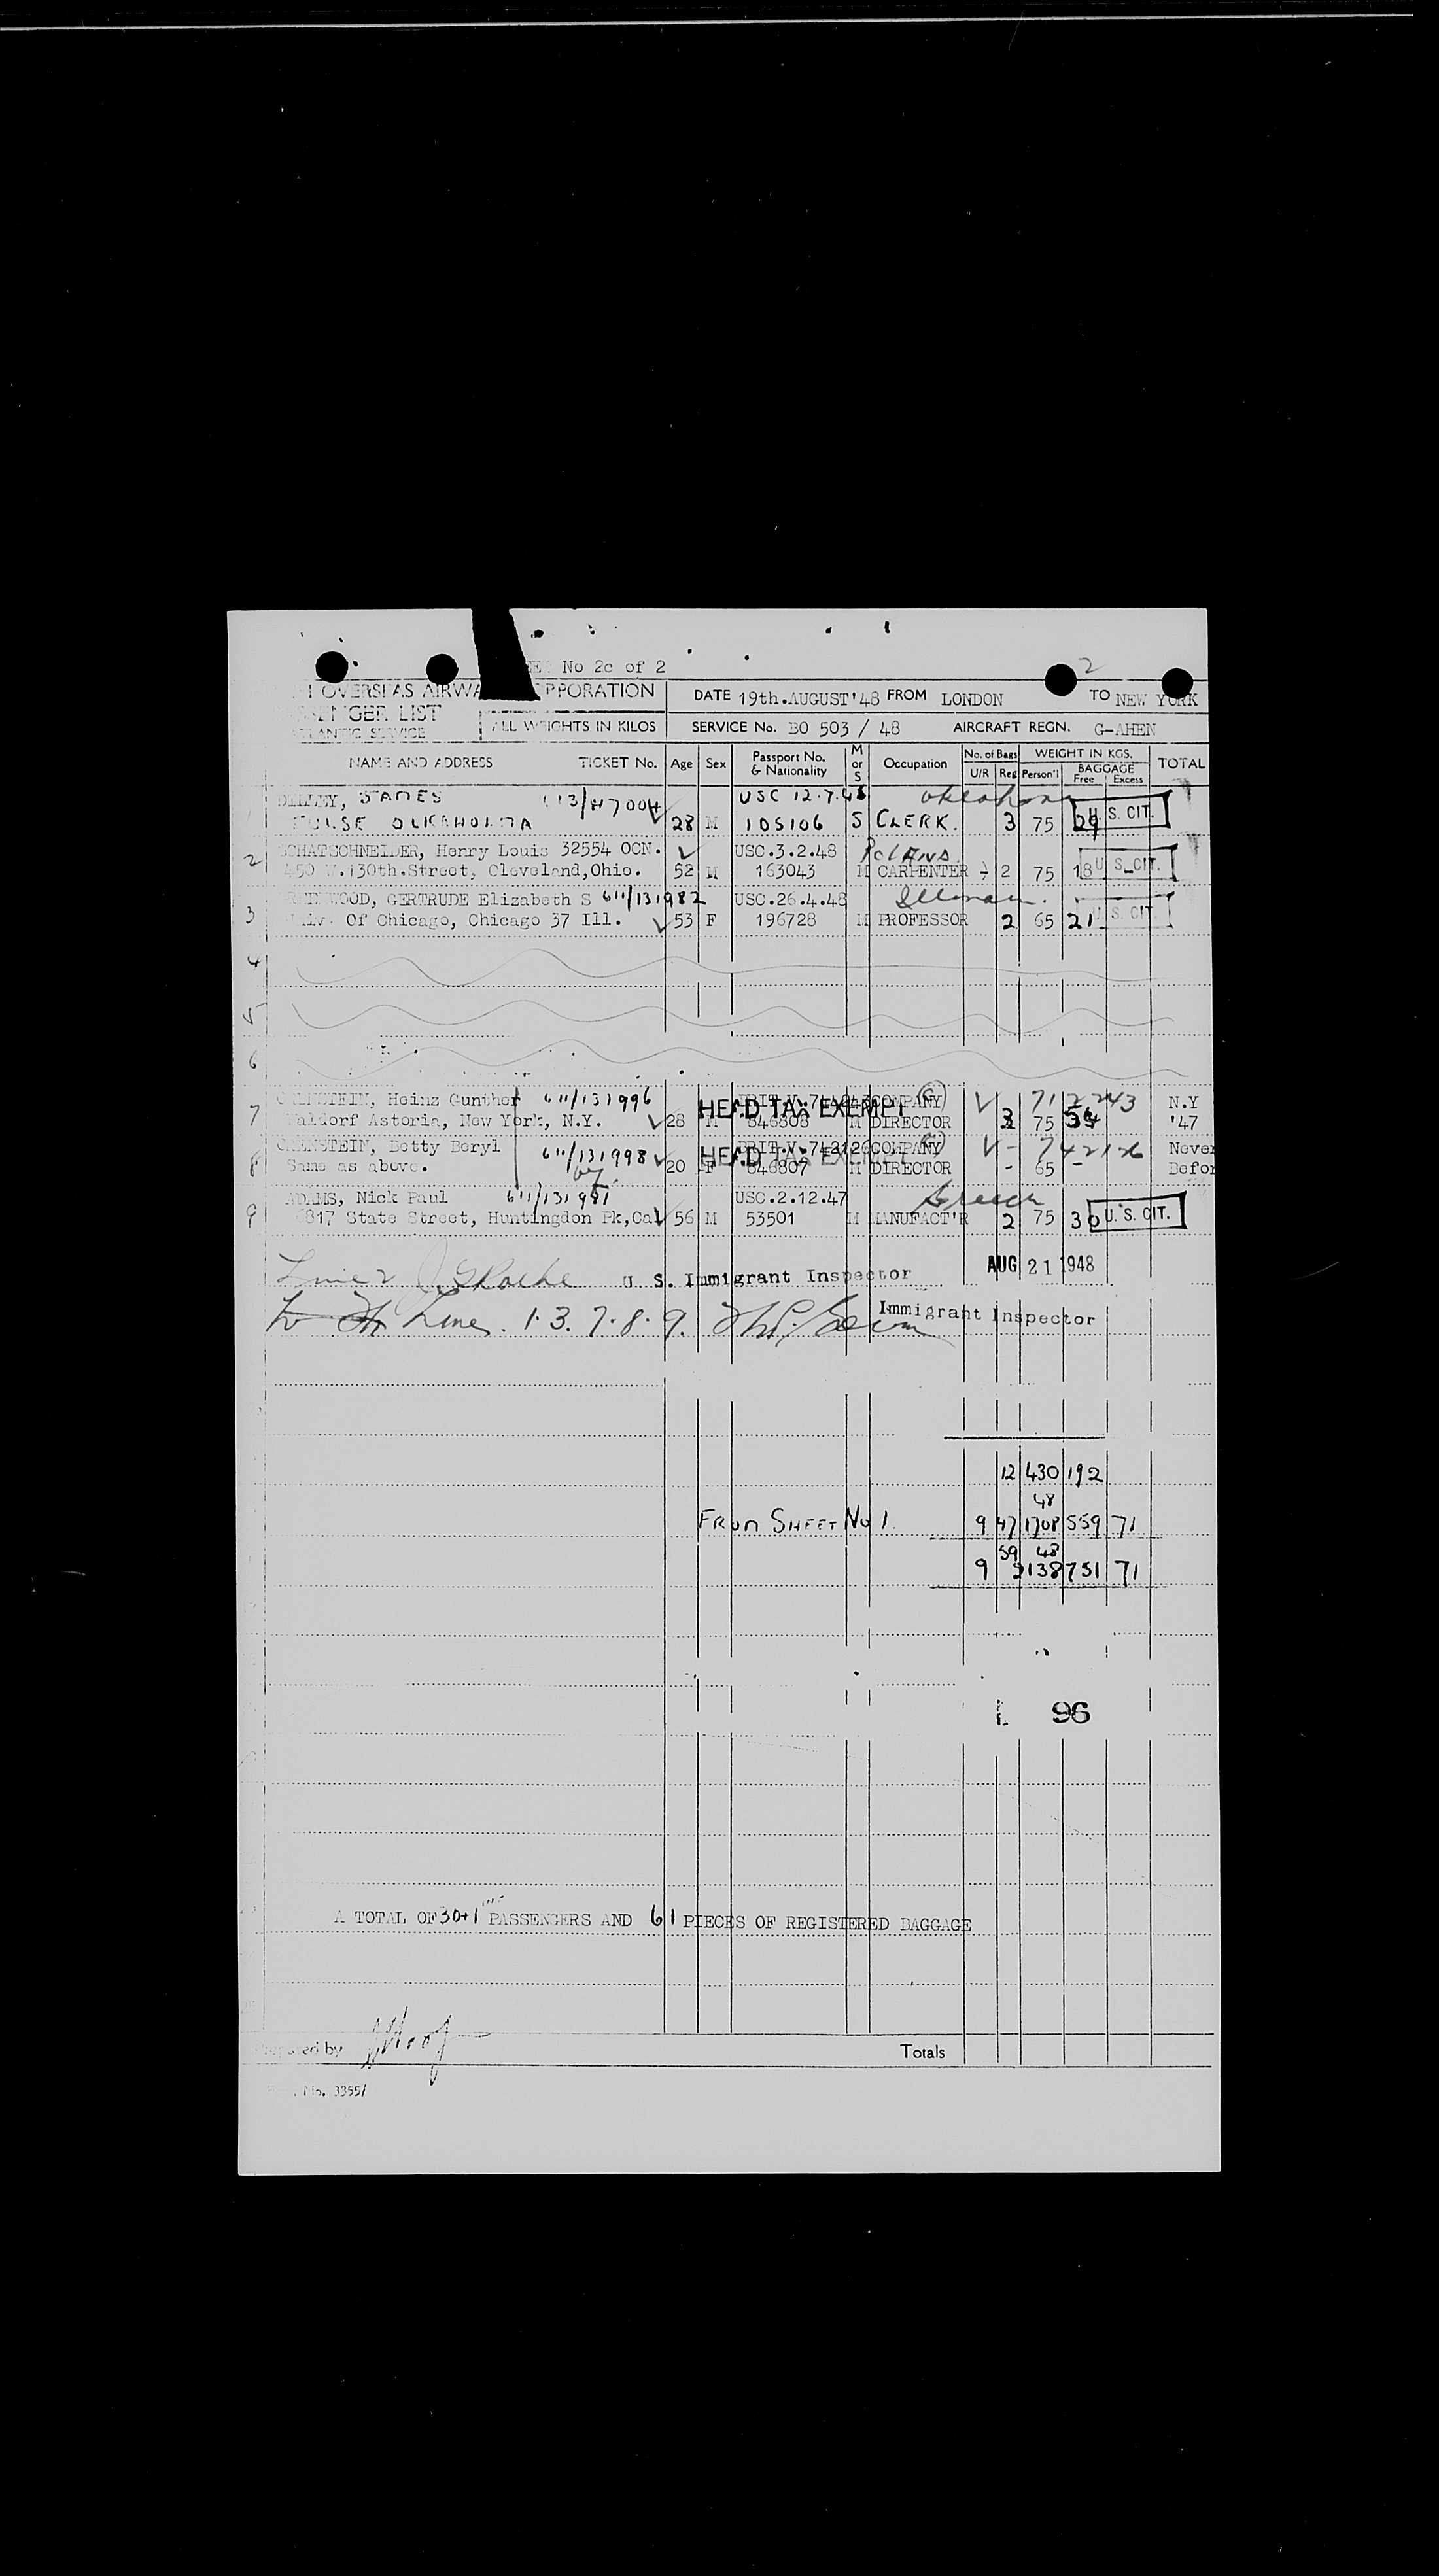 No 2c of 2
2
OVERSEAS AIRWA CORPORATION
DATE 19th.AUGUST'48 FROM LONDON TO NEW YORK
PASSENGER LIST
ATLANTIC SERVICE
ALL WEIGHTS IN KILOS
SERVICE No. BO 503 / 48 AIRCRAFT REGN. G-AHEN
NAME AND ADDRESS TICKET No. Age Sex Passport No. & Nationality M or S Occupation No. of Bags U/R Reg WEIGHT IN KGS. Person'l BAGGAGE Free Excess TOTAL
DILLEY, JAMES USC 12.7.48 Oklahoma
28 M 105106 S CLERK. 3 75 29 U.S. CIT.
2 SCHATSCHNEIDER, Henry Louis 32554 OCN. USC.3.2.48 Poland
450 W.130th.Street, Cleveland,Ohio. 52 M 163043 M CARPENTER 2 75 18 U.S. CIT.
3 WOOD, GERTRUDE Elizabeth S 611/131982 USC.26.4.48
Univ. Of Chicago, Chicago 37 Ill. 53 F 196728 M PROFESSOR 2 65 21 U.S. CIT.
4
5
6
7 Heinz Gunther 611/131996 HEAD TAX EXEMPT COMPANY V 712243 N.Y
Waldorf Astoria, New York, N.Y. 28 M 846808 M DIRECTOR 3 75 54 '47
8 Betty Beryl 611/131998 HEAD TAX EXEMPT COMPANY V- 742126 Never
Same as above. 20 F 846807 M DIRECTOR - 65 - Befor
9 ADAMS, Nick Paul 611/131981 USC.2.12.47 Greece
6817 State Street, Huntingdon Pk,Cal 56 M 53501 M MANUFACT'R 2 75 30 U.S. CIT.
Line 2 U. S. Immigrant Inspector AUG 21 1948
Line. 1.3.7.8.9. Immigrant Inspector
12 430 192
48
FROM SHEET No 1. 9 47 1708 559 71
59 48
9 2138 751 71
96
A TOTAL OF 30+1 PASSENGERS AND 61 PIECES OF REGISTERED BAGGAGE
Prepared by Totals
No. 3355/